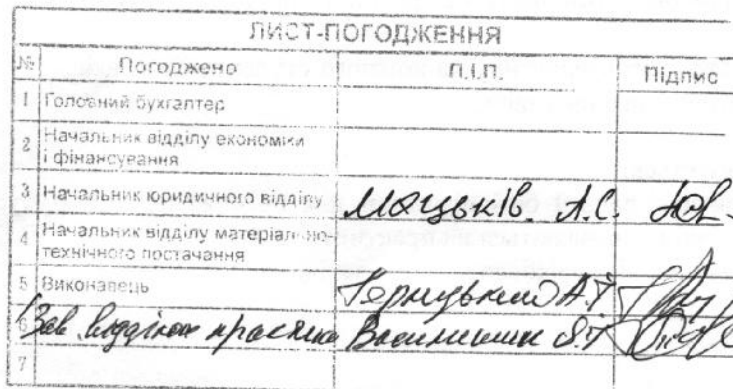 ЛИСТ-ПОГОДЖЕННЯ
№ Погоджено П.І.П. Підпис
1 Головний бухгалтер
2 Начальник відділу економіки
і фінансування
3 Начальник юридичного відділу Мацьків. А.С.
4 Начальник відділу матеріально-
технічного постачання
5 Виконавець
6 Зав. відділом
7